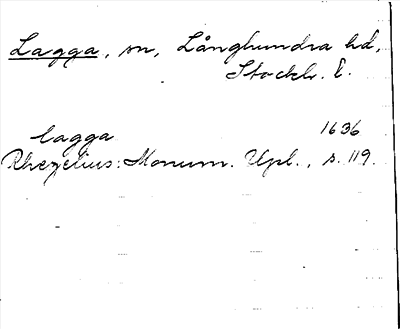 Lagga, sn, Långhundra hd,
Stockh. l.
lagga 1636
Rhezelius: Monum. Upl., s. 119.